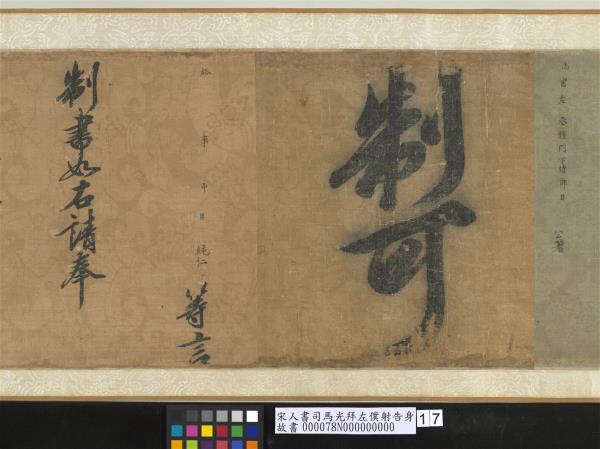 尚書左丞權門下侍郎臣
公著
制可
給事中臣純仁
等言
制書如右請奉
宋人書司馬光拜左僕射告身
故書 000078N000000000
17